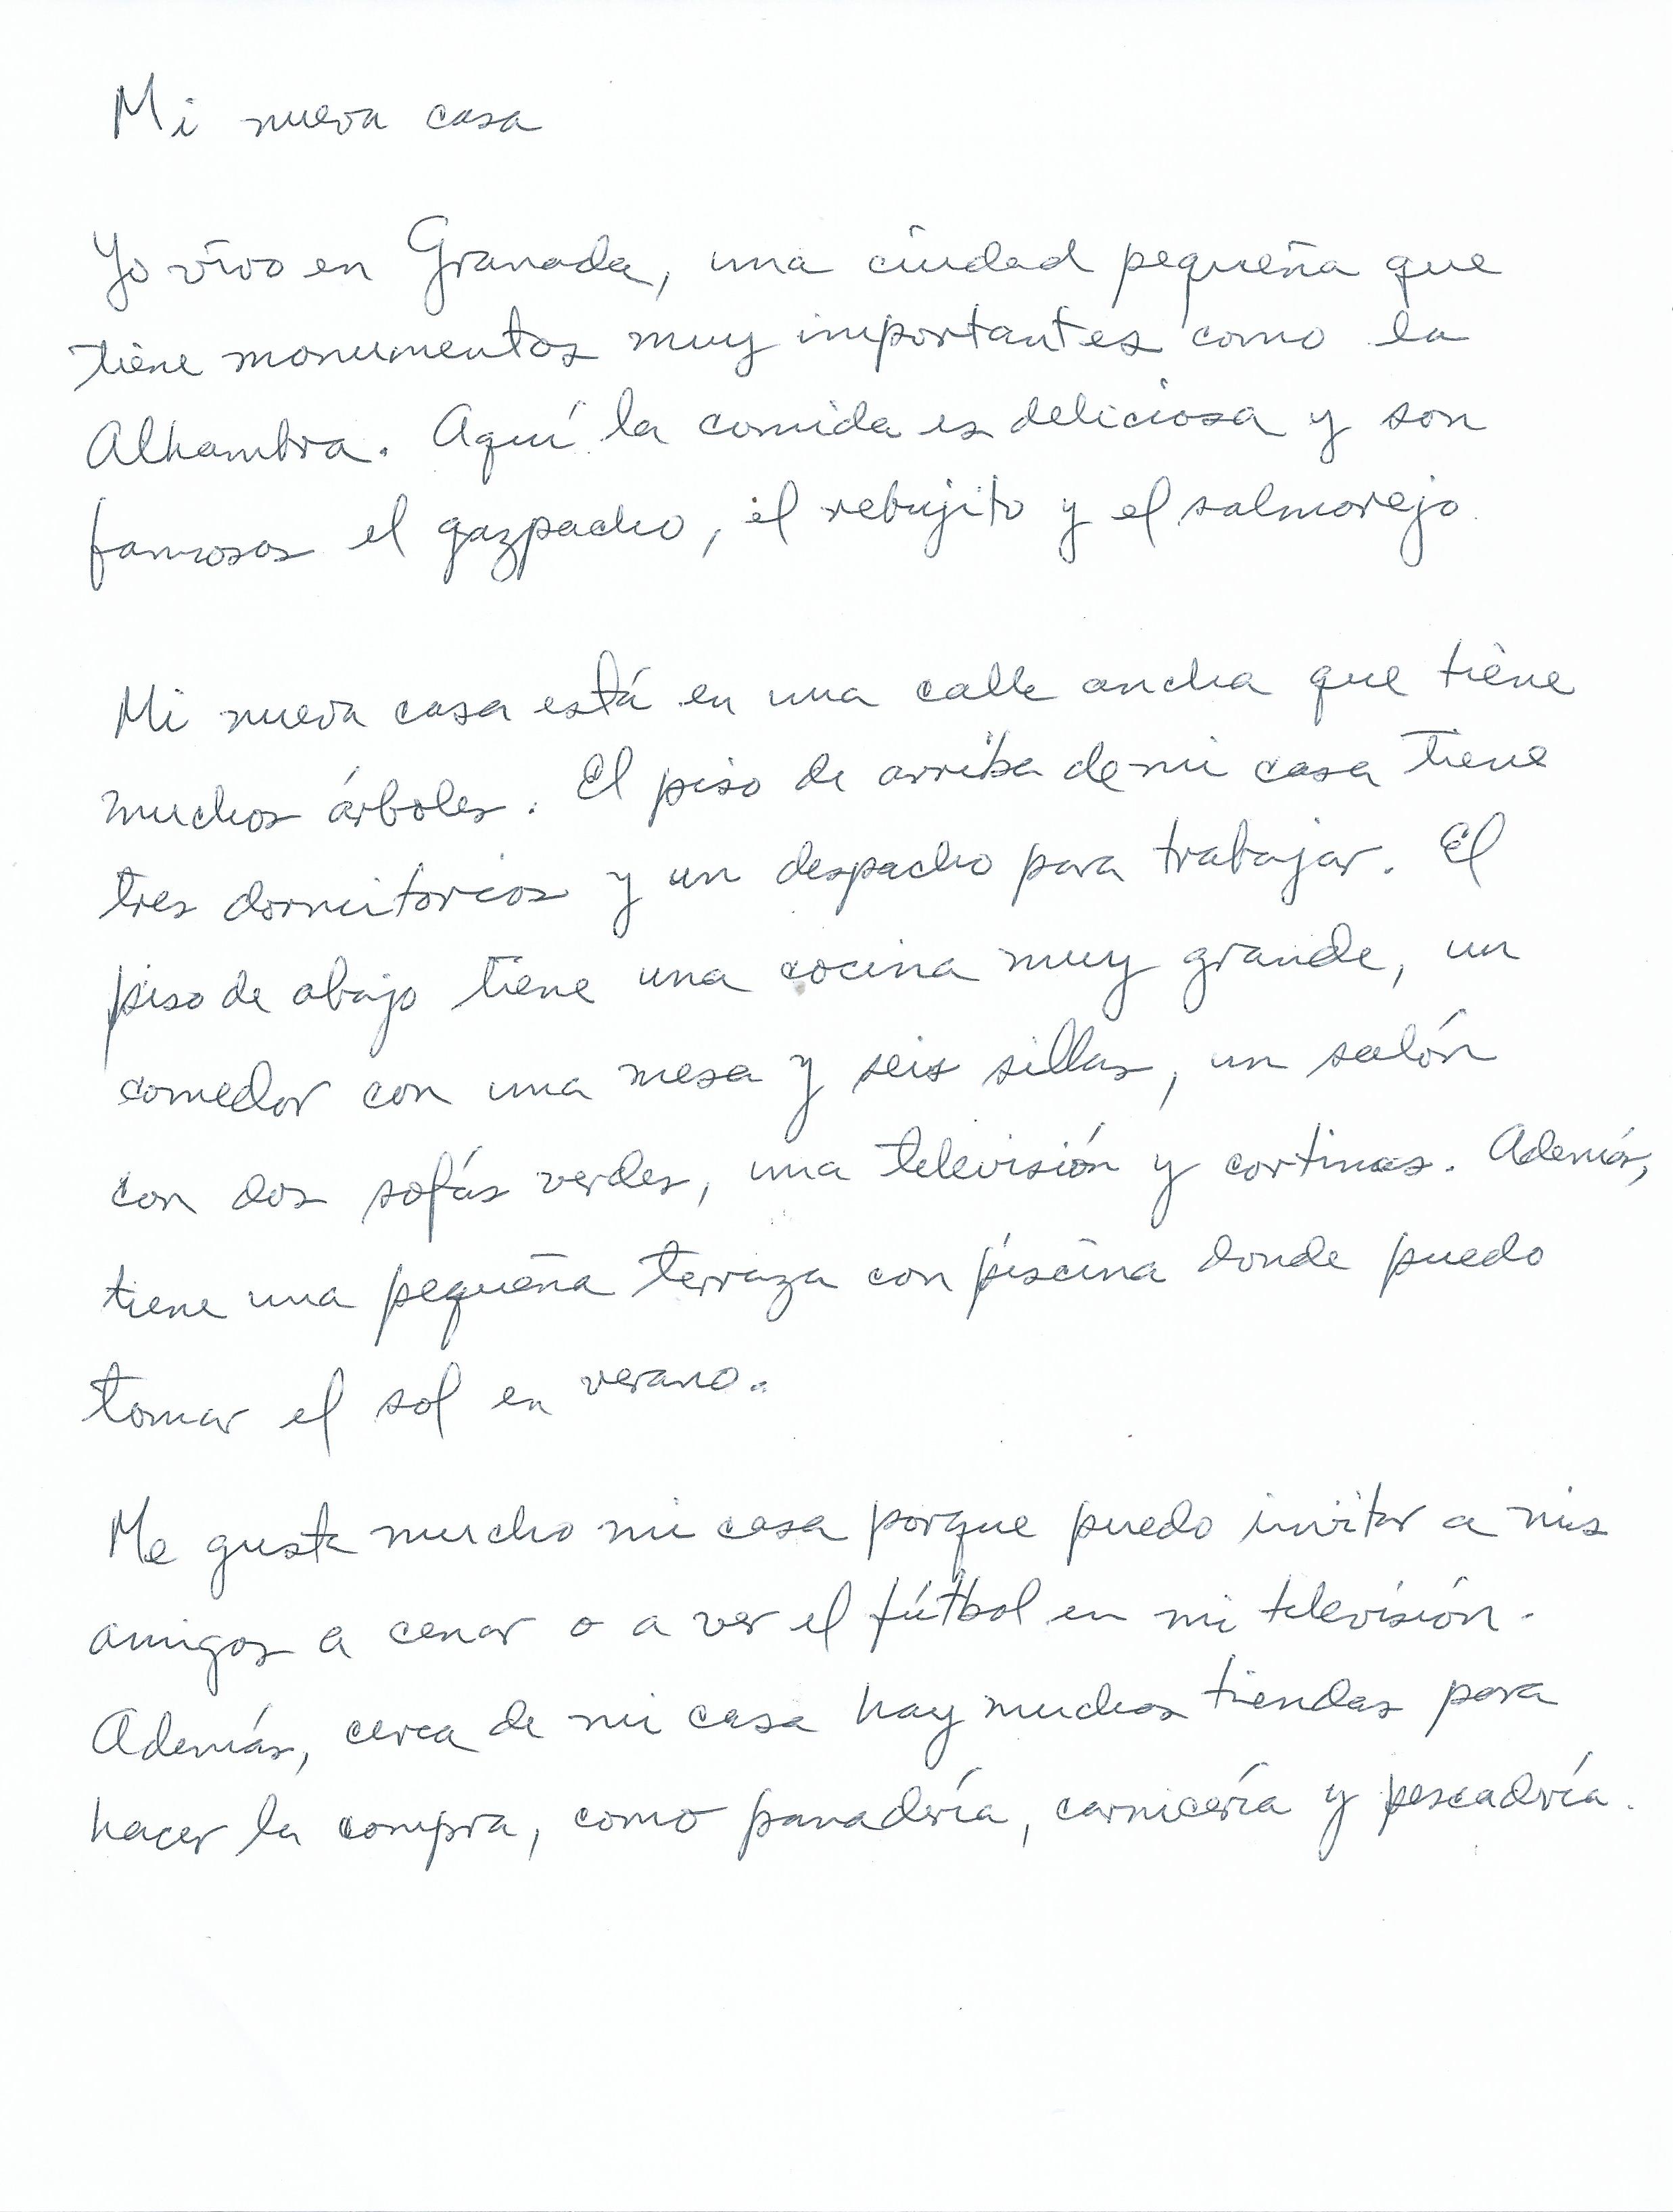 Mi nueva casa
Yo vivo en Granada, una ciudad pequeña que
tiene monumentos muy importantes como la
Alhambra. Aquí la comida es deliciosa y son
famosos el gazpacho, el rebujito y el salmorejo.
Mi nueva casa está en una calle ancha que tiene
muchos árboles. El piso de arriba de mi casa tiene
tres dormitorios y un despacho para trabajar. El
piso de abajo tiene una cocina muy grande, un
comedor con una mesa y seis sillas, un salón
con dos sofás verdes, una televisión y cortinas. Además,
tiene una pequeña terraza con piscina donde puedo
tomar el sol en verano.
Me gusta mucho mi casa porque puedo invitar a mis
amigos a cenar o a ver el fútbol en mi televisión.
Además, cerca de mi casa hay muchas tiendas para
hacer la compra, como panadería, carnicería y pescadría.